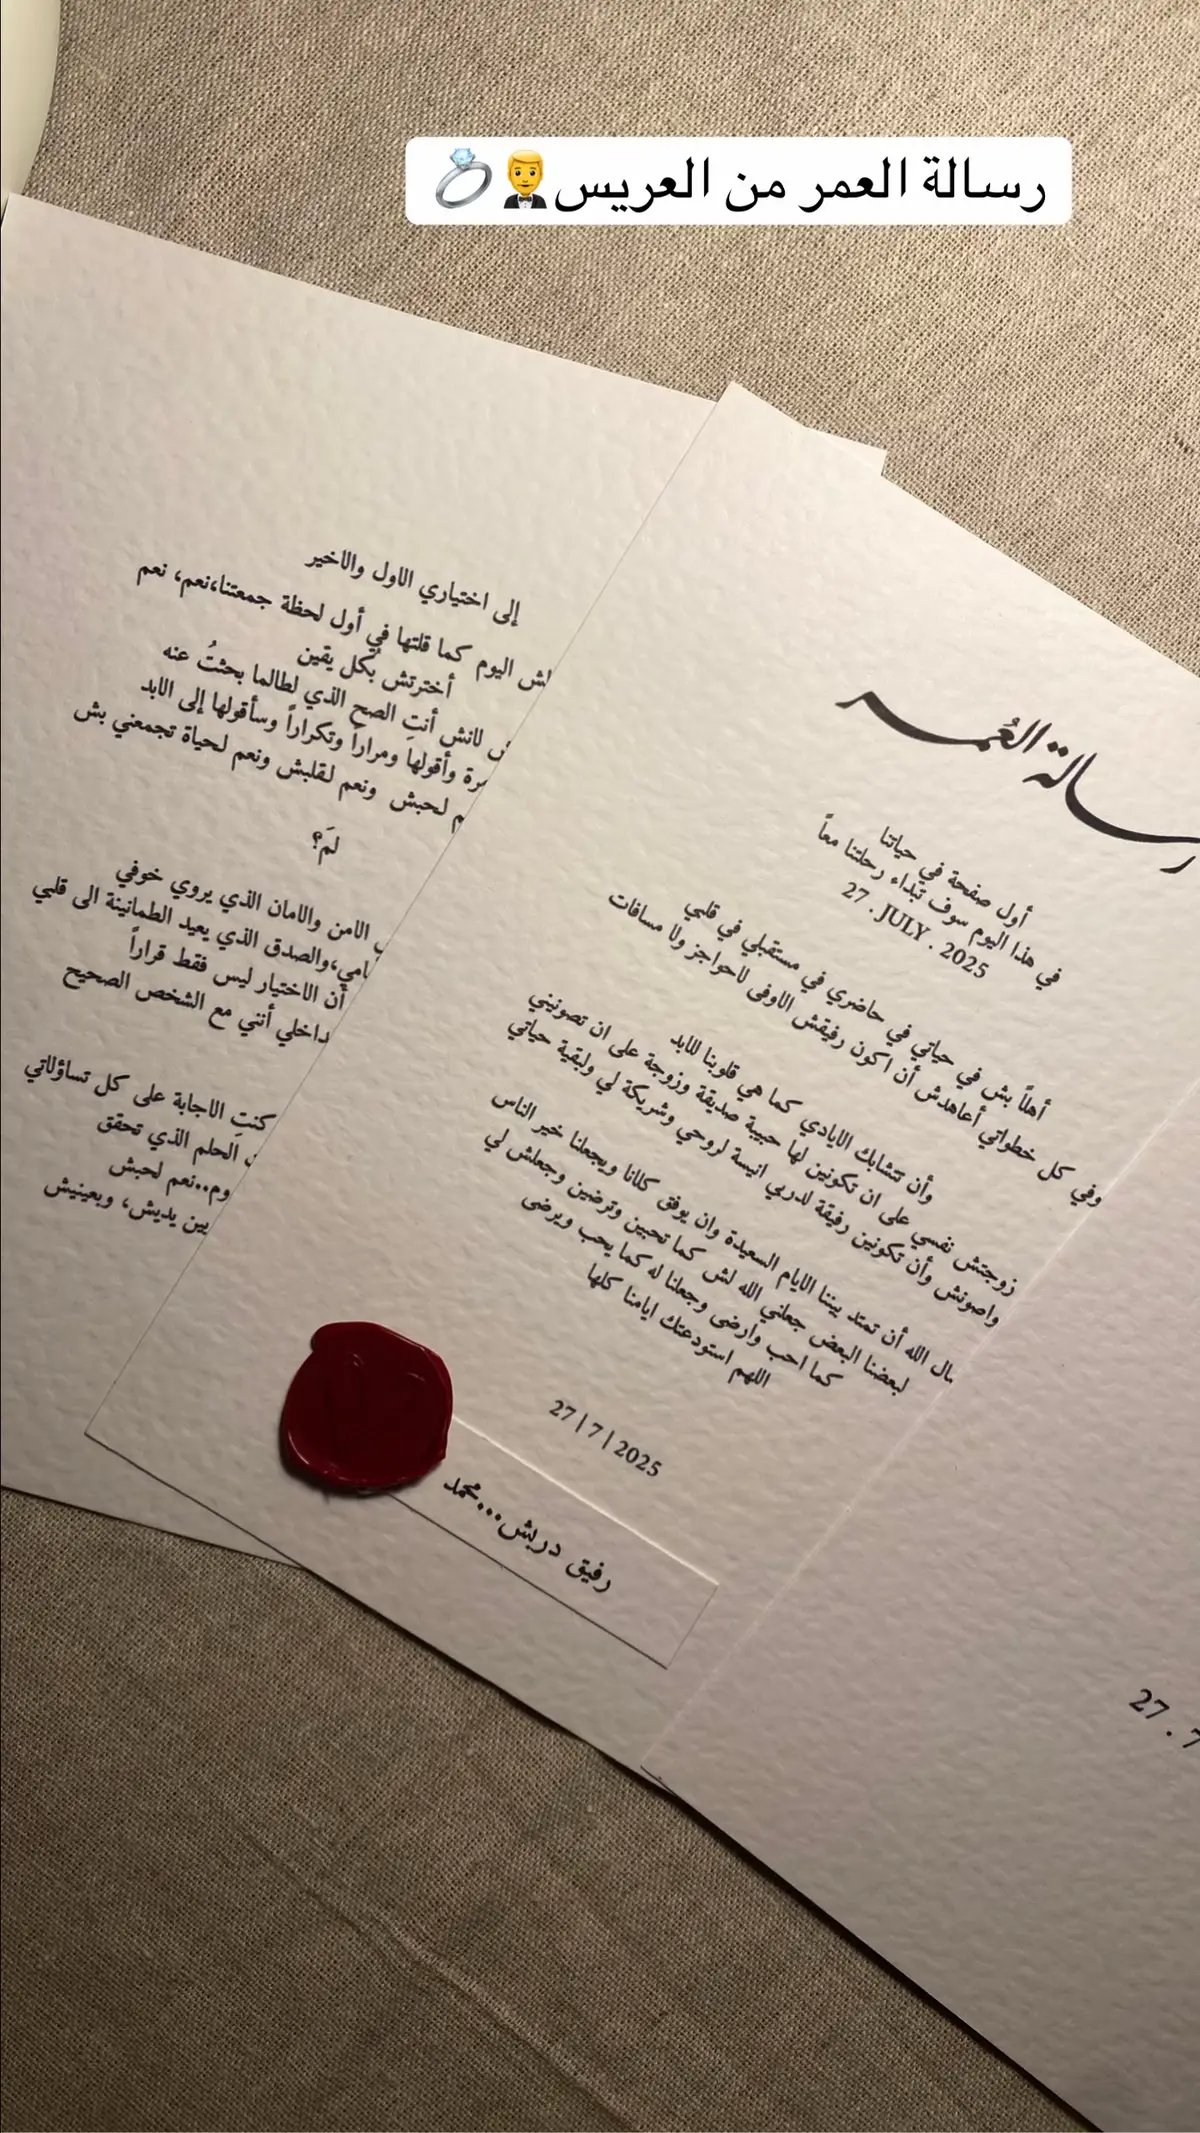 رسالة العمر من العريس🤵💍
رسالة العُمـر
أول صفحة في حياتنا
في هذا اليوم سوف تبداء رحلتنا معاً
27 . JULY . 2025
أهلاً بش في حياتي في حاضري في مستقبلي في قلبي
وفي كل خطواتي أعاهدش أن اكون رفيقش الاوفى لاحواجز ولا مسافات
وأن تتشابك الايادي كما هي قلوبنا للابد
زوجتش نفسي على ان تكونين لها حبيبة صديقة وزوجة على ان تصونيني
واصونش وأن تكونين رفيقة لدربي انيسة لروحي وشريكة لي ولبقية حياتي
ال الله أن تمتد بيننا الايام السعيدة وان يوفق كلانا ويجعلنا خير الناس
لبعضنا البعض جعلني الله لش كما تحبين وترضين وجعلش لي
كما احب وارضى وجعلنا له كما يحب ويرضى
اللهم استودعتك ايامنا كلها
27 | 7 | 2025
رفيق دربش...محمد
27 . 7
إلى اختياري الاول والاخير
لش اليوم كما قلتها في أول لحظة جمعتنا،نعم، نعم
أخترتش بكل يقين
لانش أنتِ الصح الذي لطالما بحثتُ عنه
رة وأقولها ومراراً وتكراراً وسأقولها إلى الابد
م لحبش ونعم لقلبش ونعم لحياة تجمعني بش
لمَ؟
الامن والامان الذي يروي خوفي
امي،والصدق الذي يعيد الطمانينة الى قلبي
أن الاختيار ليس فقط قراراً
داخلي أنني مع الشخص الصحيح
كنتِ الاجابة على كل تساؤلاتي
الحلم الذي تحقق
وم..نعم لحبش
بين يديش، وبعينيش